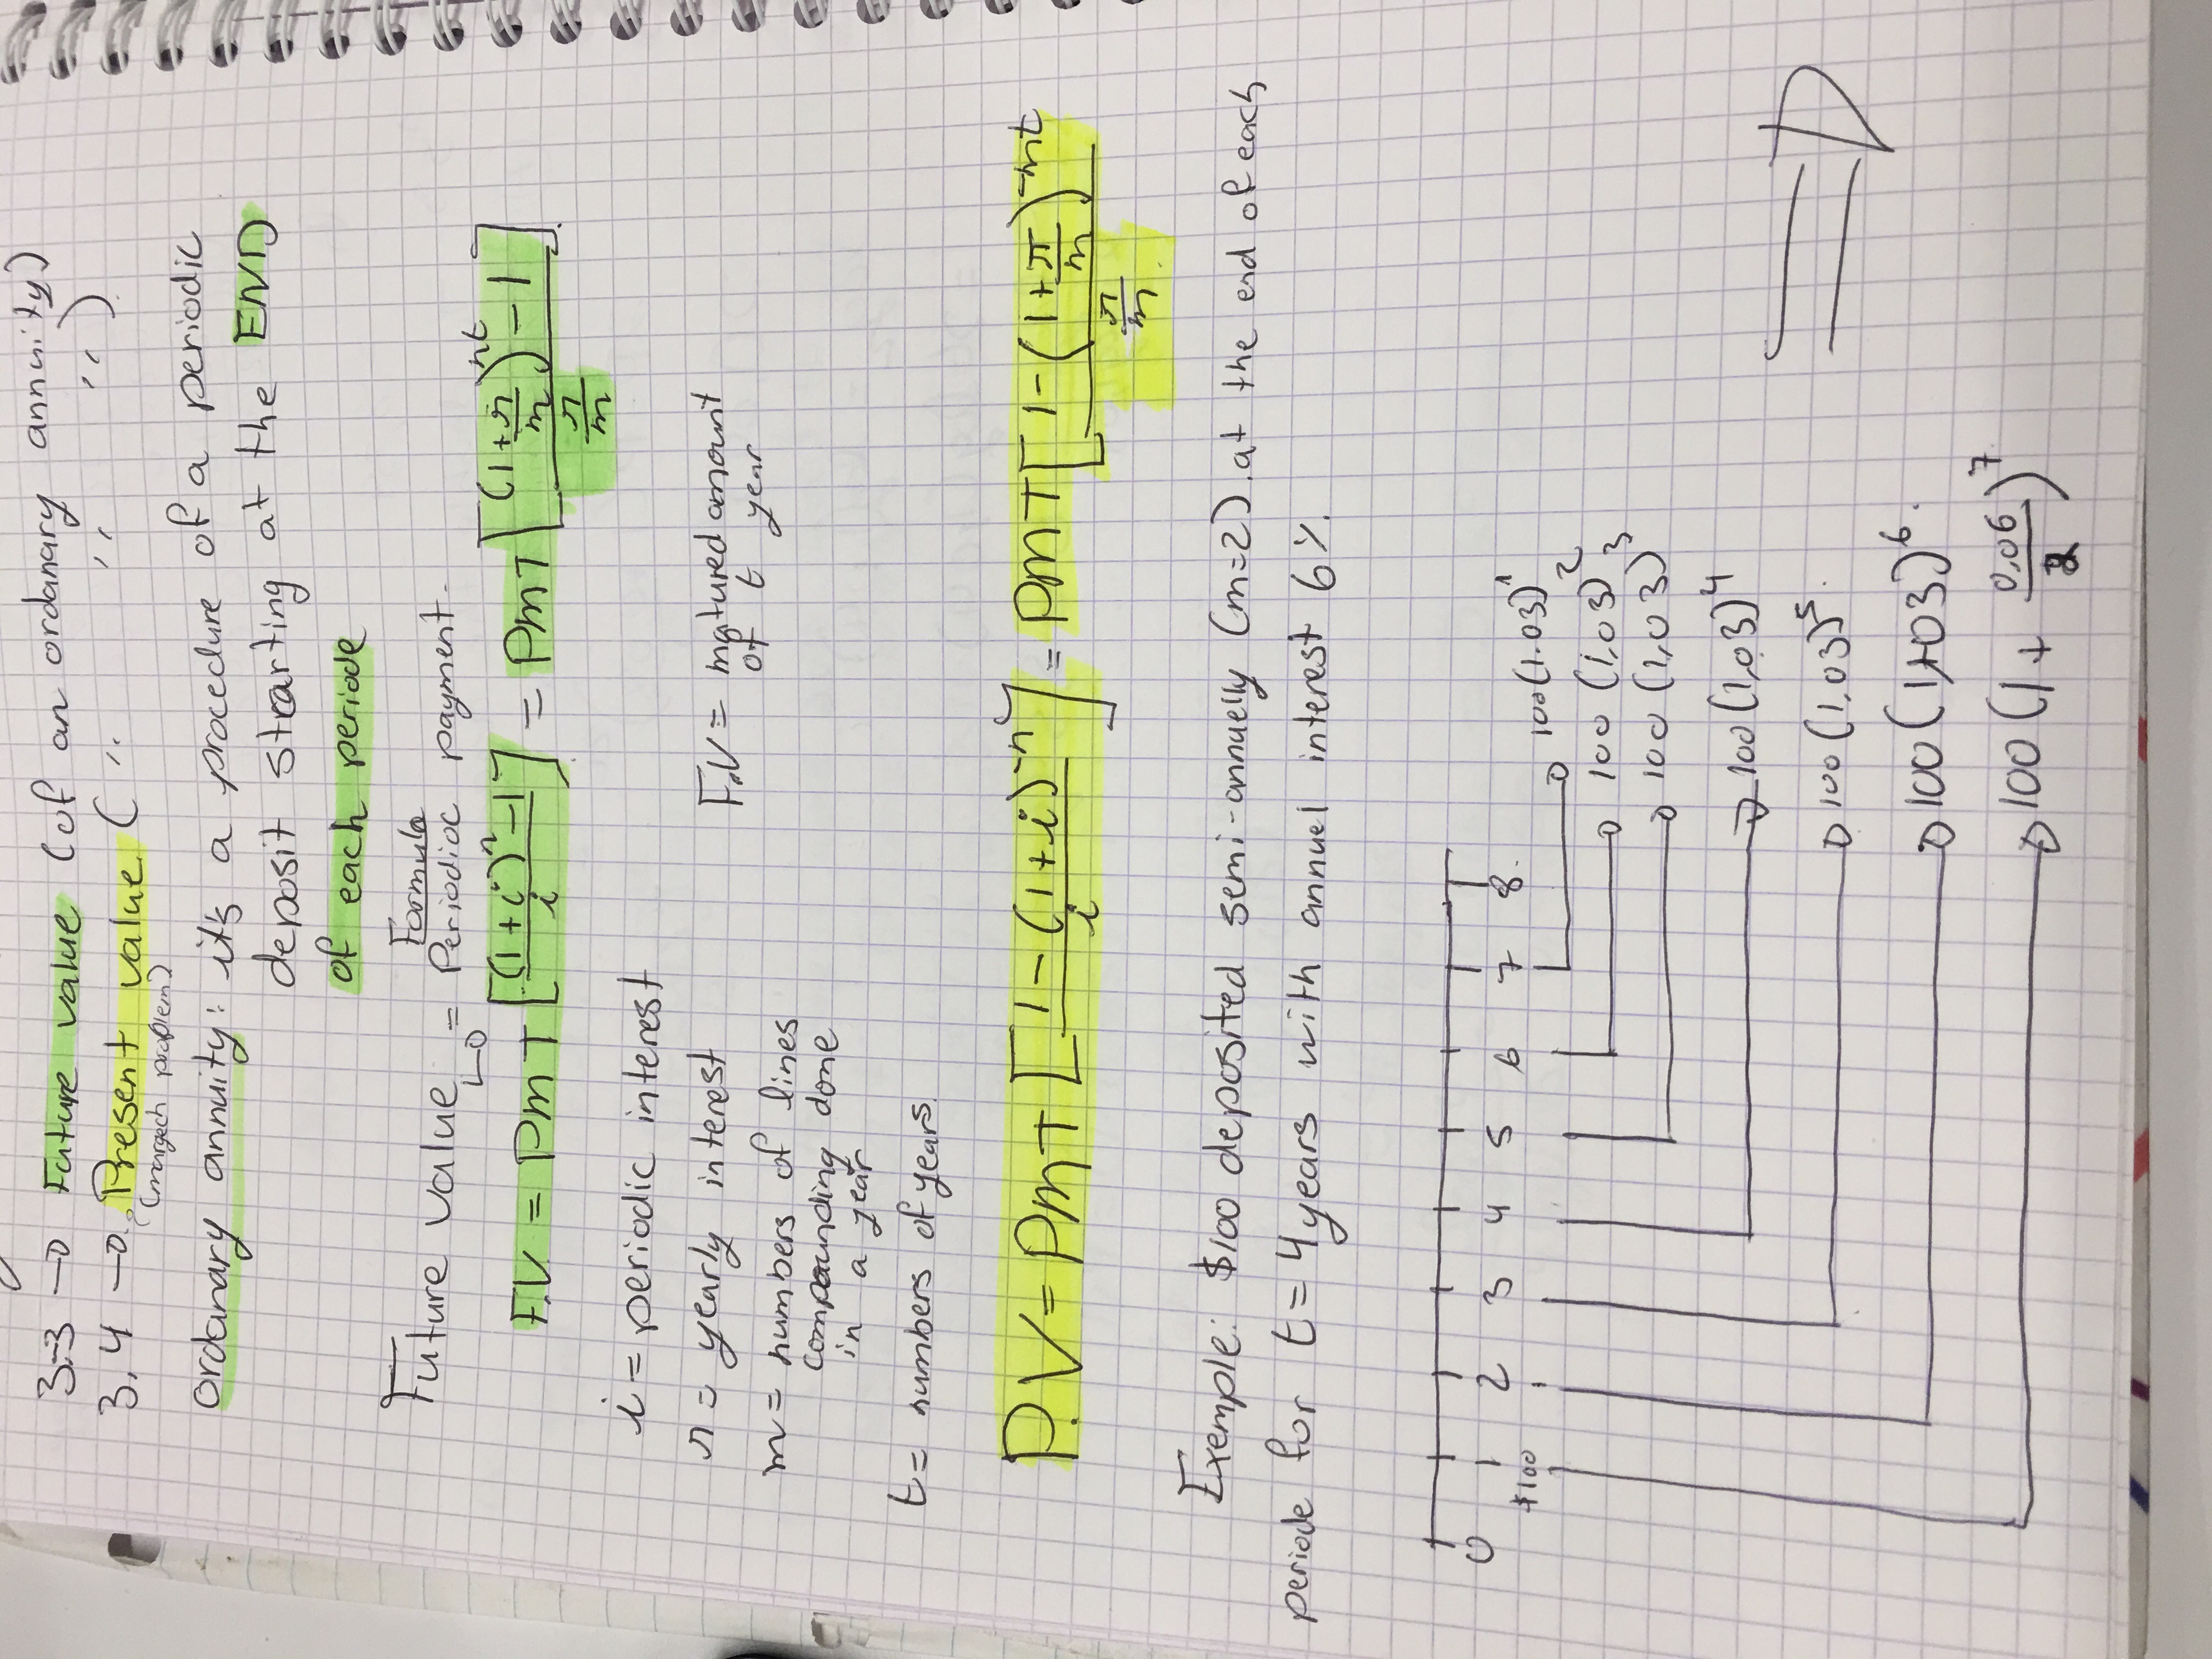 3.3 → Future value (of an ordanary annuity)
3,4 → Present value ( '' '' '' '' )
ordanary annuity: it's a procedure of a periodic
deposit starting at the END
of each periode
Formula
Future value → = Periodic payment.
F.V = PMT [((1+i)^n - 1)/i] = PMT [((1+r/m)^nt - 1)/(r/m)]
i = periodic interest
r = yearly interest
F.V = matured amount of t year
m = numbers of lines
compounding done
in a year
t = numbers of years.
P.V = PMT [(1-(1+i)^-n)/i] = PMT [(1-(1+r/m)^-mt)/(r/m)]
Exemple: $100 deposited semi-annuelly (m=2).at the end of each
periode for t=4years with annuel interest 6%.
0 1 2 3 4 5 6 7 8.
$100
100(1.03)^1
100(1,03)^2
100(1,03)^3
100(1,03)^4
100(1,03)^5.
100(1,03)^6.
100(1+0,06/2)^7